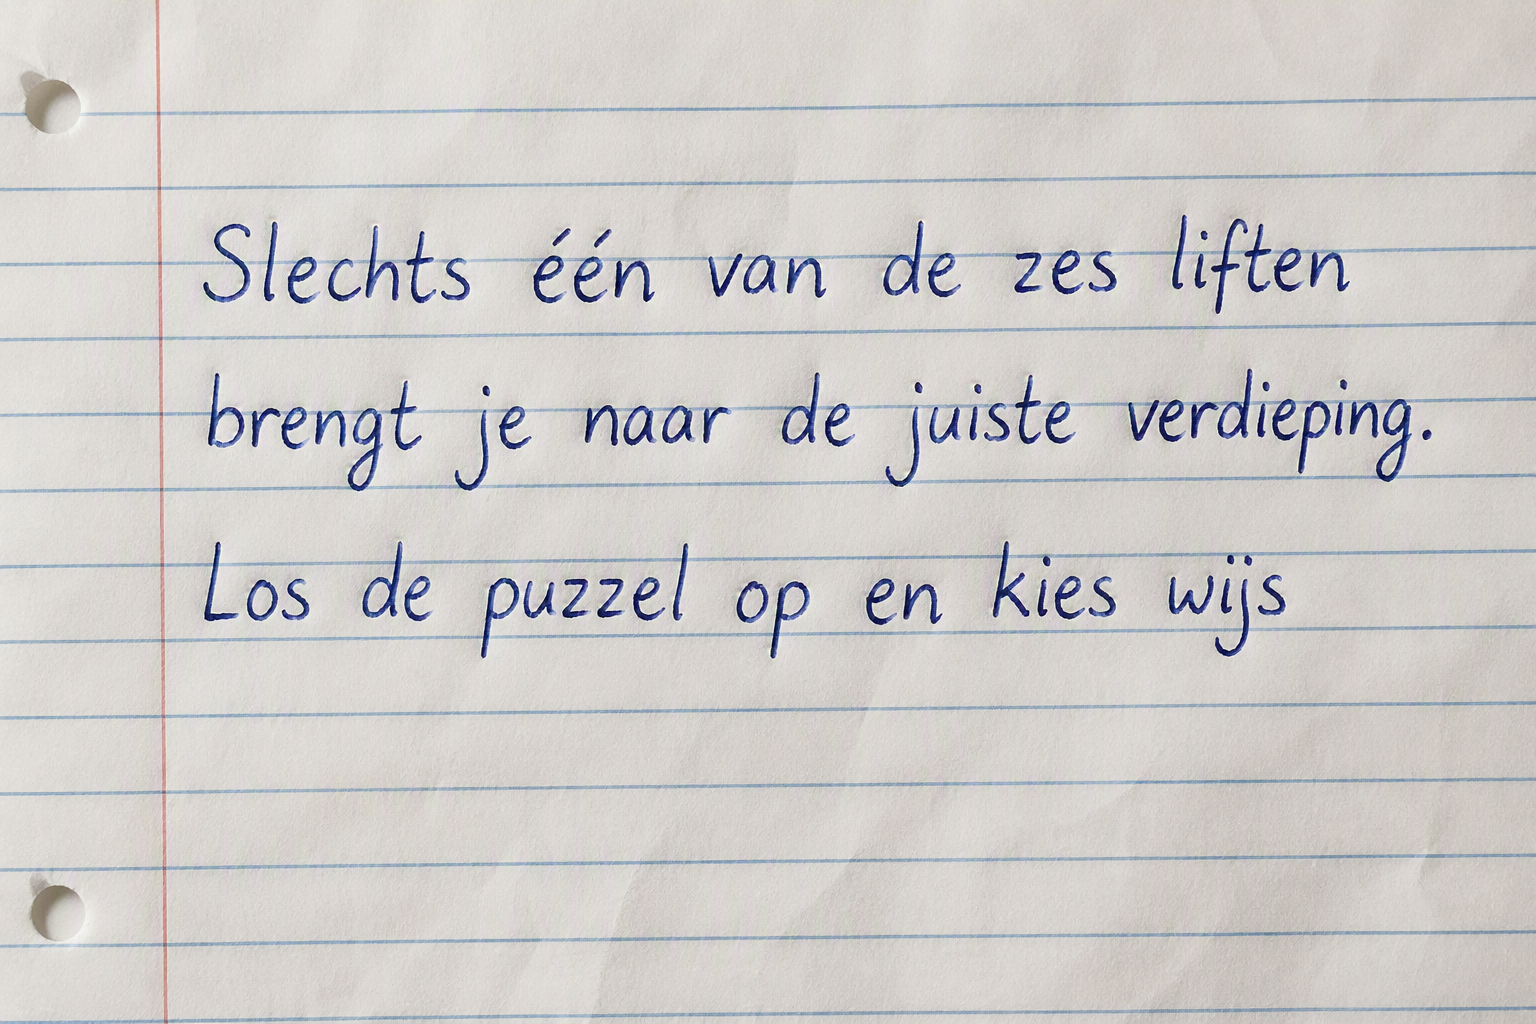 Slechts één van de zes liften
brengt je naar de juiste verdieping.
Los de puzzel op en kies wijs